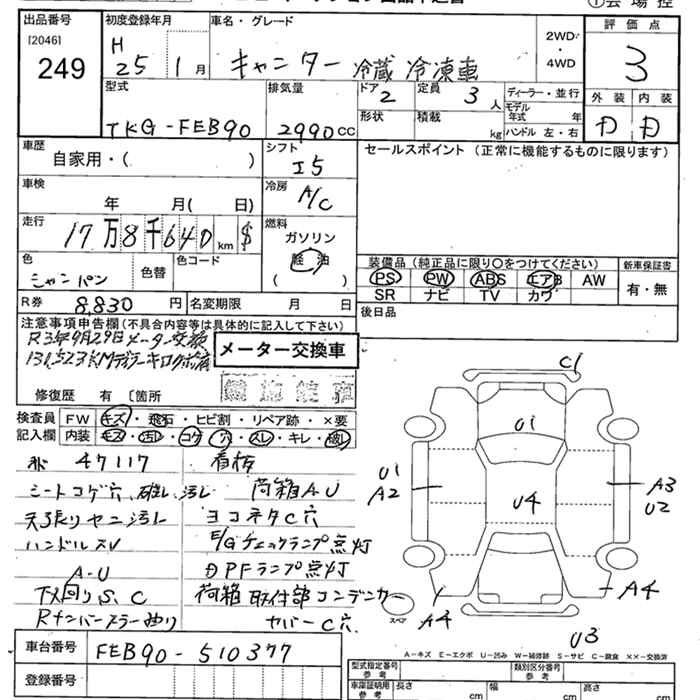 出品番号
[2046]
249
初度登録年月
H
25 1月
車名・グレード
キャンター 冷蔵冷凍車
2WD
・
4WD
評価点
3
外装 内装
D D
型式
TKG-FEB90
排気量
2990CC
ドア
2
定員
3人
ディーラー・並行
モデル年式 年
形状
積載
kg
ハンドル 左・右
車歴
自家用・( )
シフト
I5
セールスポイント (正常に機能するものに限ります)
車検
年 月( 日)
冷房
A/C
走行
17万8千640km $
燃料
ガソリン
軽油
( )
色
シャンパン
色替
色コード
装備品 (純正品に限り〇をつけてください)
新車保証書
PS PW ABS エアB AW
SR ナビ TV カワ
有・無
R券
8,830円
名変期限 月 日
後日品
注意事項申告欄(不具合内容等は具体的に記入して下さい)
R3年9月29日メーター交換
131,523KM
メーター交換車
修復歴 有 〔箇所
検査員
記入欄
FW キズ・飛石・ヒビ割・リペア跡・×要
内装 キズ・汚レ・コゲ・穴・スレ・キレ・破レ
47117
看板
シートコゲ穴、破レ、汚レ
荷箱A U
天張りヤニ汚レ
ヨコネタC穴
ハンドルスレ
E/Gチェックランプ点灯
A-U
DPFランプ点灯
下回りS、C
荷箱取付部コンデンサー
カバーC穴
C1
U1
U1
A2
U4
A3
U2
A4
A4
スペア
U3
車台番号
FEB90-510377
登録番号
A-キズ E-エクボ U-凹み W-補修跡 S-サビ C-腐食 ××-交換済
型式指定番号
参考
類別区分番号
参考
車庫証明用
参考
長さ cm
幅 cm
高さ cm